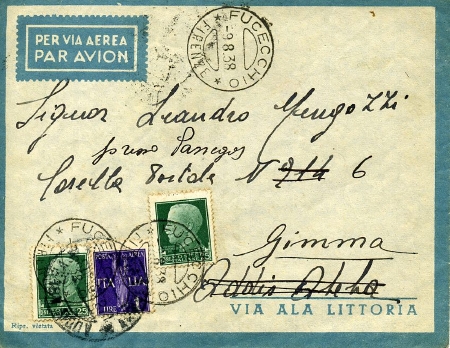 PER VIA AEREA
PAR AVION
FUCECCHIO
-9.8.38
* FIRENZE *
Signor Leandro Mengozzi
presso
Casella Postale N 214 6
Gimma
Addis Abeba
VIA ALA LITTORIA
FUCECCHIO
FUCECCHIO
POSTA AEREA
ITALIA
LIRE 1
25
25
Ripr. vietata